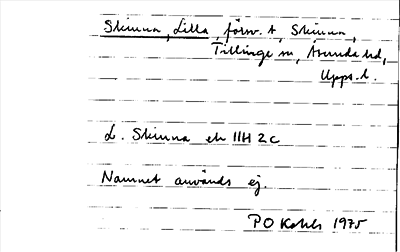 Skinna, Lilla, förv. t. Skinna,
Tillinge sn, Åsunda hd,
Upps. l.
L. Skinna ek 11H 2c
Namnet används ej.
PO Kahls 1975